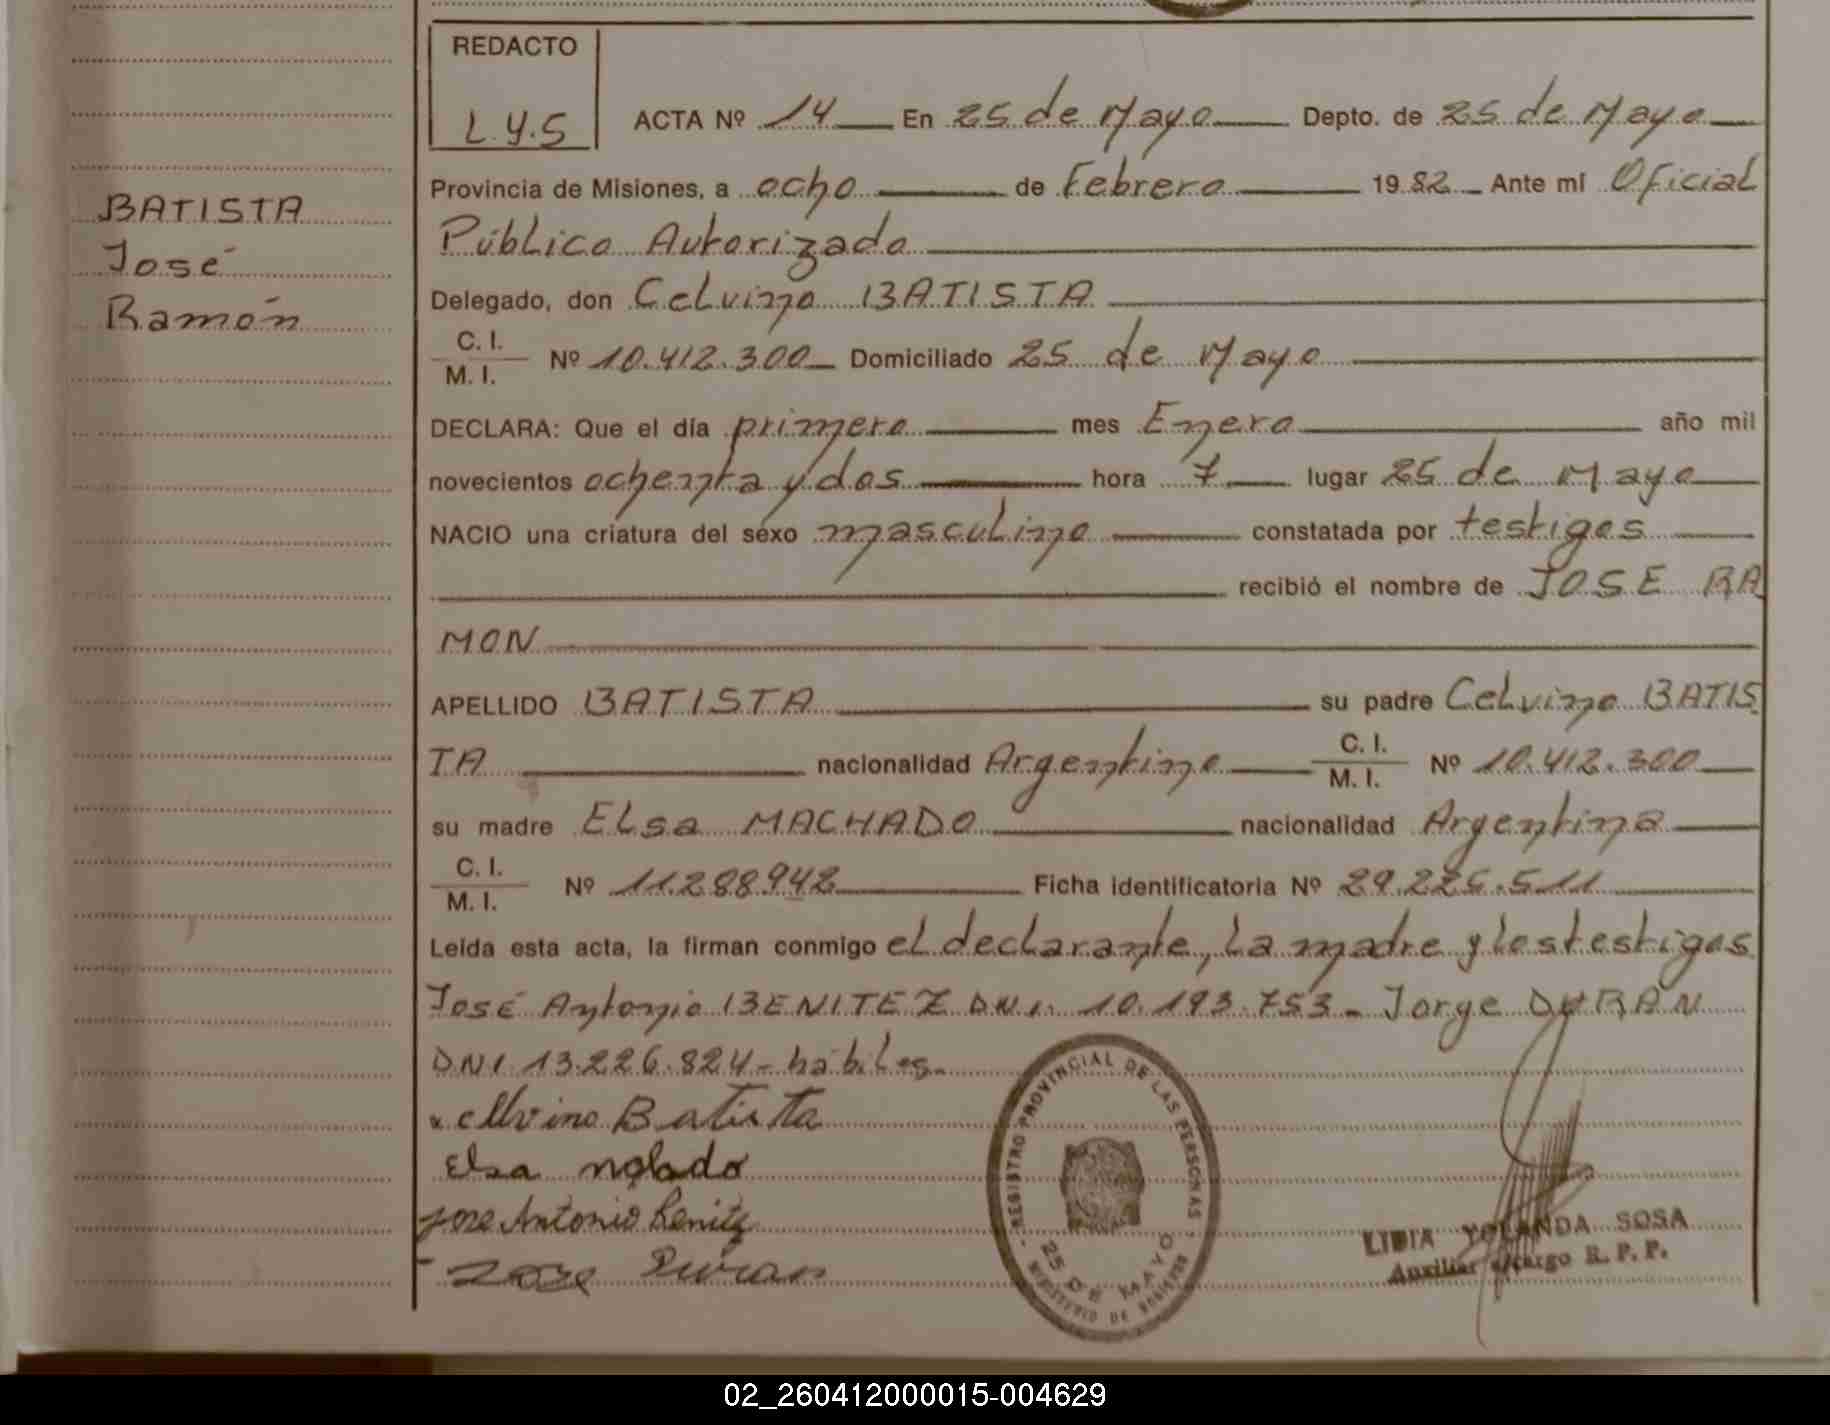 REDACTO
L.Y.S
ACTA Nº 14 En 25 de Mayo Depto. de 25 de Mayo
BATISTA
José
Ramón
Provincia de Misiones, a ocho de Febrero 1982 Ante mí Oficial
Público Autorizado
Delegado, don Celvino BATISTA
C. I.
M. I. Nº 10.412.300 Domiciliado 25 de Mayo
DECLARA: Que el día primero mes Enero año mil
novecientos ochenta y dos hora 7 lugar 25 de Mayo
NACIO una criatura del sexo masculino constatada por testigos
recibió el nombre de JOSE RA
MON
APELLIDO BATISTA su padre Celvino BATIS
TA nacionalidad Argentino C. I.
M. I. Nº 10.412.300
su madre Elsa MACHADO nacionalidad Argentina
C. I.
M. I. Nº 11.288.942 Ficha identificatoria Nº 29.225.511
Leída esta acta, la firman conmigo el declarante, la madre y los testigos
José Antonio BENITEZ DNI. 10.193.753 - Jorge DURAN
DNI 13.226.824 - hábiles.
x celvino Batista
Elsa
Jose Antonio Benitez
Duran
REGISTRO PROVINCIAL DE LAS PERSONAS
25 DE MAYO
MINISTERIO DE GOBIERNO
LIDIA YOLANDA SOSA
Auxiliar a/cargo R. P. P.
02_260412000015-004629